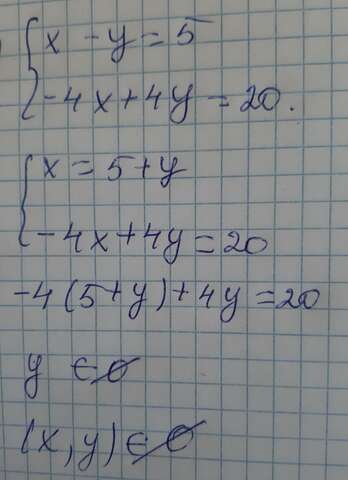 {x - y = 5
-4x + 4y = 20.
{x = 5 + y
-4x + 4y = 20
-4(5+y)+4y=20
y ∈ ∅
(x, y) ∈ ∅